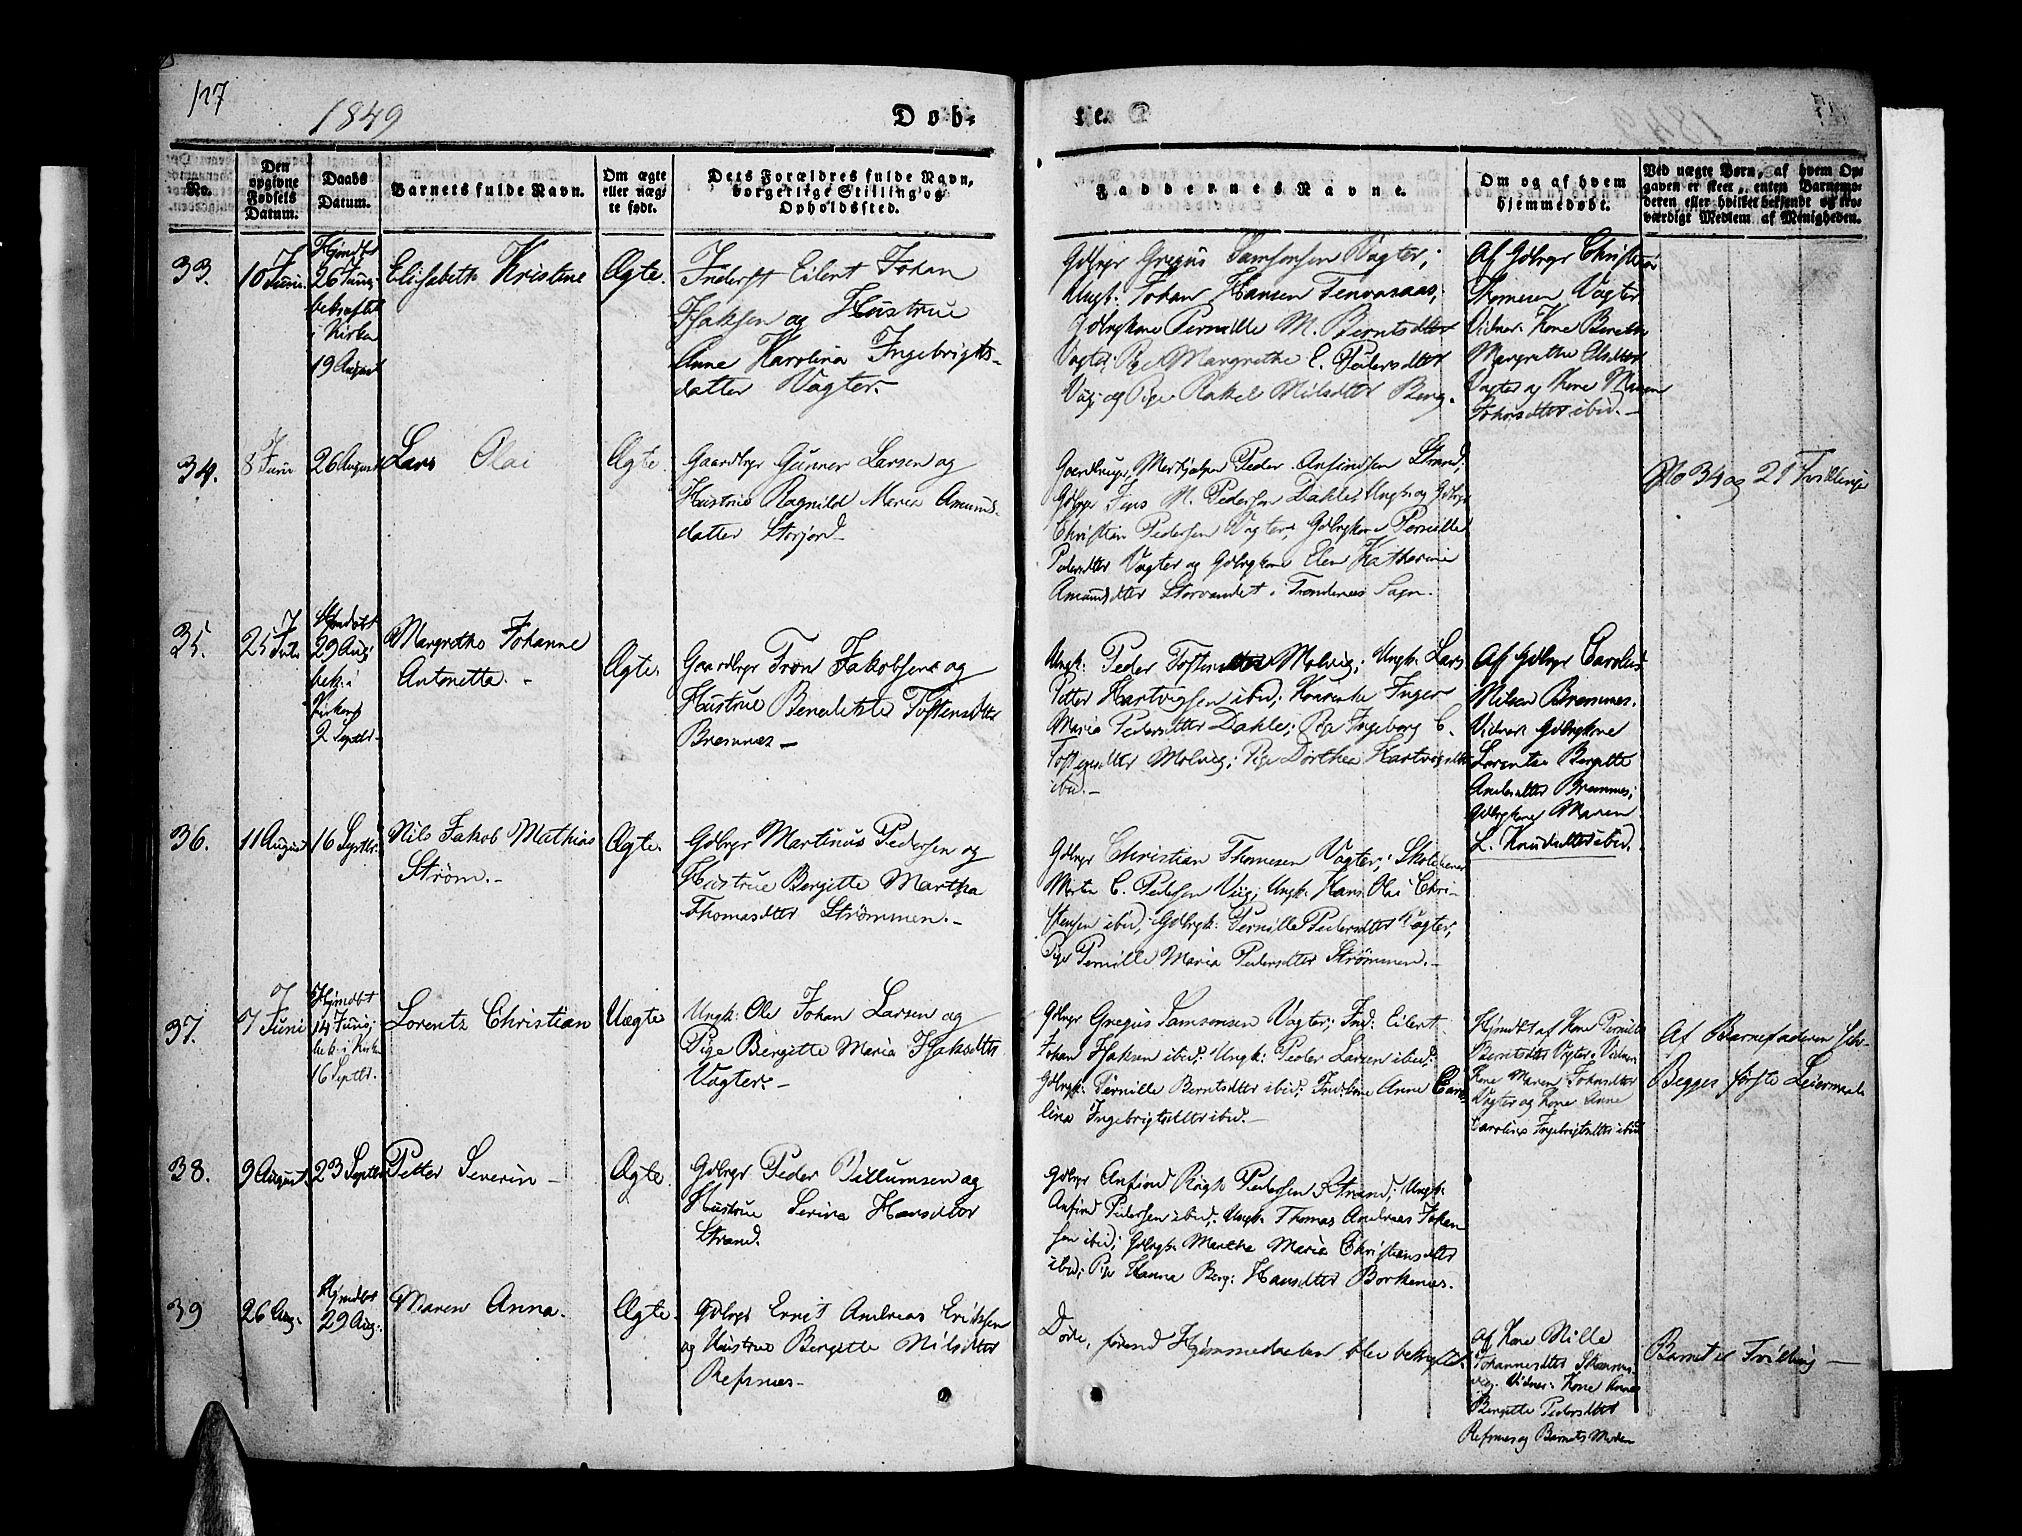 127
1849
Døb-
te.
No.
Den opgivne Fødsels Datum.
Daabs Datum.
Barnets fulde Navn.
Om ægte eller uæg-te født.
Dets Forældres fulde Navn, borgerlige Stilling og Opholdssted.
Faddernes Navne.
Om og af hvem hjemmedøbt.
Ved uægte Børn, af hvem Op-gaven er skeet, enten Barnemo-deren eller hvilket bekjendt og tro-værdigt Medlem af Menigheden.
33.
10 Juni.
Hjmdbt
26 Juni
bekræftet
i Kirken
19 August
Elisabeth Kristine
Ægte.
Inderst Eilert Johan
Isaksen og Hustrue
Anne Karolina Ingebrigts-
datter Vagter.
Gdbrgr Gregus Samsonsen Vagter;
Ungk: Johan Hansen
Gdbrgkone Pernille M. Berntsdtter
Vagter; Pige Margrethe E. Pedersdtter
Viig og Pige Rakel Nilsdtter Berg.
Af Gdbrgr Christian
Thomesen Vagter
Vidner: Kone Bereth
Margrethe Elsdtter
Vagter og Kone Maren
Johansdtter ibid.-
34.
8 Juni
26 August
Lars Olai
Ægte.
Gaardbrgr Gunner Larsen og
Hustrue Ragnild Maria Amunds-
datter Storjord
Peder Anfindsen Strand;
Gdbrgr Jens N. Pedersen Dahle; Ungk: og Gdbrgr
Christian Pedersen Vagter; Gdbrgkone Pernille
Pedersdtter Vagter og Gdbrgkone Elen Katherina
Amundsdtter Storvandet i Trondenes Sogn.
No 34 og 21 Tvillinge
35.
25 Juli
Hjmdbt
29 Aug:
bek. i
Kirken
2 Septbr.
Margrethe Johanne
Antonetta.-
Ægte.
Gaardbrgr Tron Jakobsen og
Hustrue Benedikte Tostensdtter
Bremnes-
Ungk: Peder Tostensen Molvig; Ungk: Lars
Petter Hartvigsen ibid; Inger
Maria Pedersdtter Dahle; Pige Ingeborg C.
Tostensdtter Molvig; Pige Dorthea Hartvigsdtter
ibid.-
Af Gdbrgr Carolus
Nilsen Bremnes.
Vidner: Gdbrgkone
Lorentze Bergitte
Andersdtter Bremnes;
Gdbrgkone Maren
L. Knudsdtter ibid.
36.
11 August
16 Septbr.
Nils Jakob Mathias
Strøm.-
Ægte.
Gdbrgr Martinus Pedersen og
Hustrue Bergitte Martha
Thomasdtter Strømmen.-
Gdbrgr Christian Thomesen Vagter;
C. Pedersen Viig; Ungk: Hans Olai Chri-
stensen ibid; Gdbrgk: Pernille Pedersdtter Vagter;
Pige Pernille Maria Pedersdtter Strømmen.-
37.
7 Juni
Hjmdbt
14 Juni;
bek. i Kirken
16 Septbr.
Lorentz Christian
Uægte
Ungk: Ole Johan Larsen og
Pige Bergitte Maria Isaksdtter
Vagter.-
Gdbrgr Gregus Samsonsen Vagter; Ind: Eilert
Johan Isaksen ibid; Ungk: Peder Larsen ibid;
Gdbrgk: Pernille Berntsdtter ibid; Ind: kone Anne Caro-
lina Ingebrigtsdtter ibid.-
Hjmdbt af Kone Pernille
Berntsdtter Vagter. Vidner:
Kone Maren Johansdtter
Vagter og Kone Anne
Carolina Ingebrigtsdtter ibid
Af Barnefaderen selv
Begges første Leiermaal
38.
9 August
23 Septbr.
Petter Severin-
Ægte.
Gdbrgr Peder Villumsen og
Hustrue Serina Hansdtter
Strand.
Gdbrgr Anfind Pedersen Strand; Ungk:
Anfind Pedersen ibid; Ungk: Thomas Andreas Johan-
sen ibid; Gdbrgk: Martha Maria Christiansdtter
ibid; Pige Hanna Berg: Hansdtter Borkenes.
39
26 Aug.
Hjmdbt
29 Aug:
Maren Anna.
Ægte.
Gdbrgr Ernst Andreas Eriksen
og Hustrue Bergitte Nilsdtter
Refsnes-
Døde, førend Hjemmedaaben blev bekræftet.
Af Kone Nille
Johannesdtter
Vidner: Kone
Bergitte Pedersdtter
Refsnes og Barnets Moder
Barnet er Tvilling-